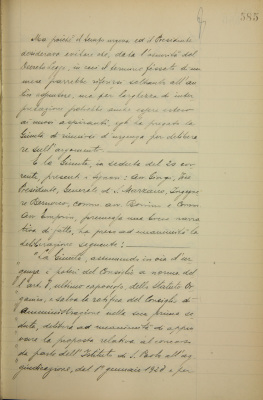 585
Ma, poichè il tempo urgeva ed il Presidente
desiderava evitare che, data l'
Decreto legge, in cui il termine fissato di un
mese parrebbe riferirsi soltanto all'
ma per larghezza di inter
pretazione potrebbe anche essere esteso
ai nuovi aspiranti, egli ha pregato la
Giunta di riunirsi d'urgenza per delibera
re sull'argomento.
E la Giunta, in seduta del 20 cor
rente, presenti i Signori: Vice
Presidente, Generale di S. Marzano, Ingegne
re Bernocco, comm. avv. e Comm.
Avv. premessa una breve narra
tiva di fatto, ha preso ad unanimità la
deliberazione seguente:
"La Giunta, assumendo in via d'ur
genza i poteri del Consiglio a norma del
l'art. ultimo capoverso, dello Statuto Or
ganico, e salva la ratifica del Consiglio di
Amministrazione nella sua prima se
duta, delibera ad unanimità di appro
vare la proposta relativa al concorso
da parte dell'Istituto di S. Paolo all'ag
giudicazione, dal 1° gennaio 1923 e per